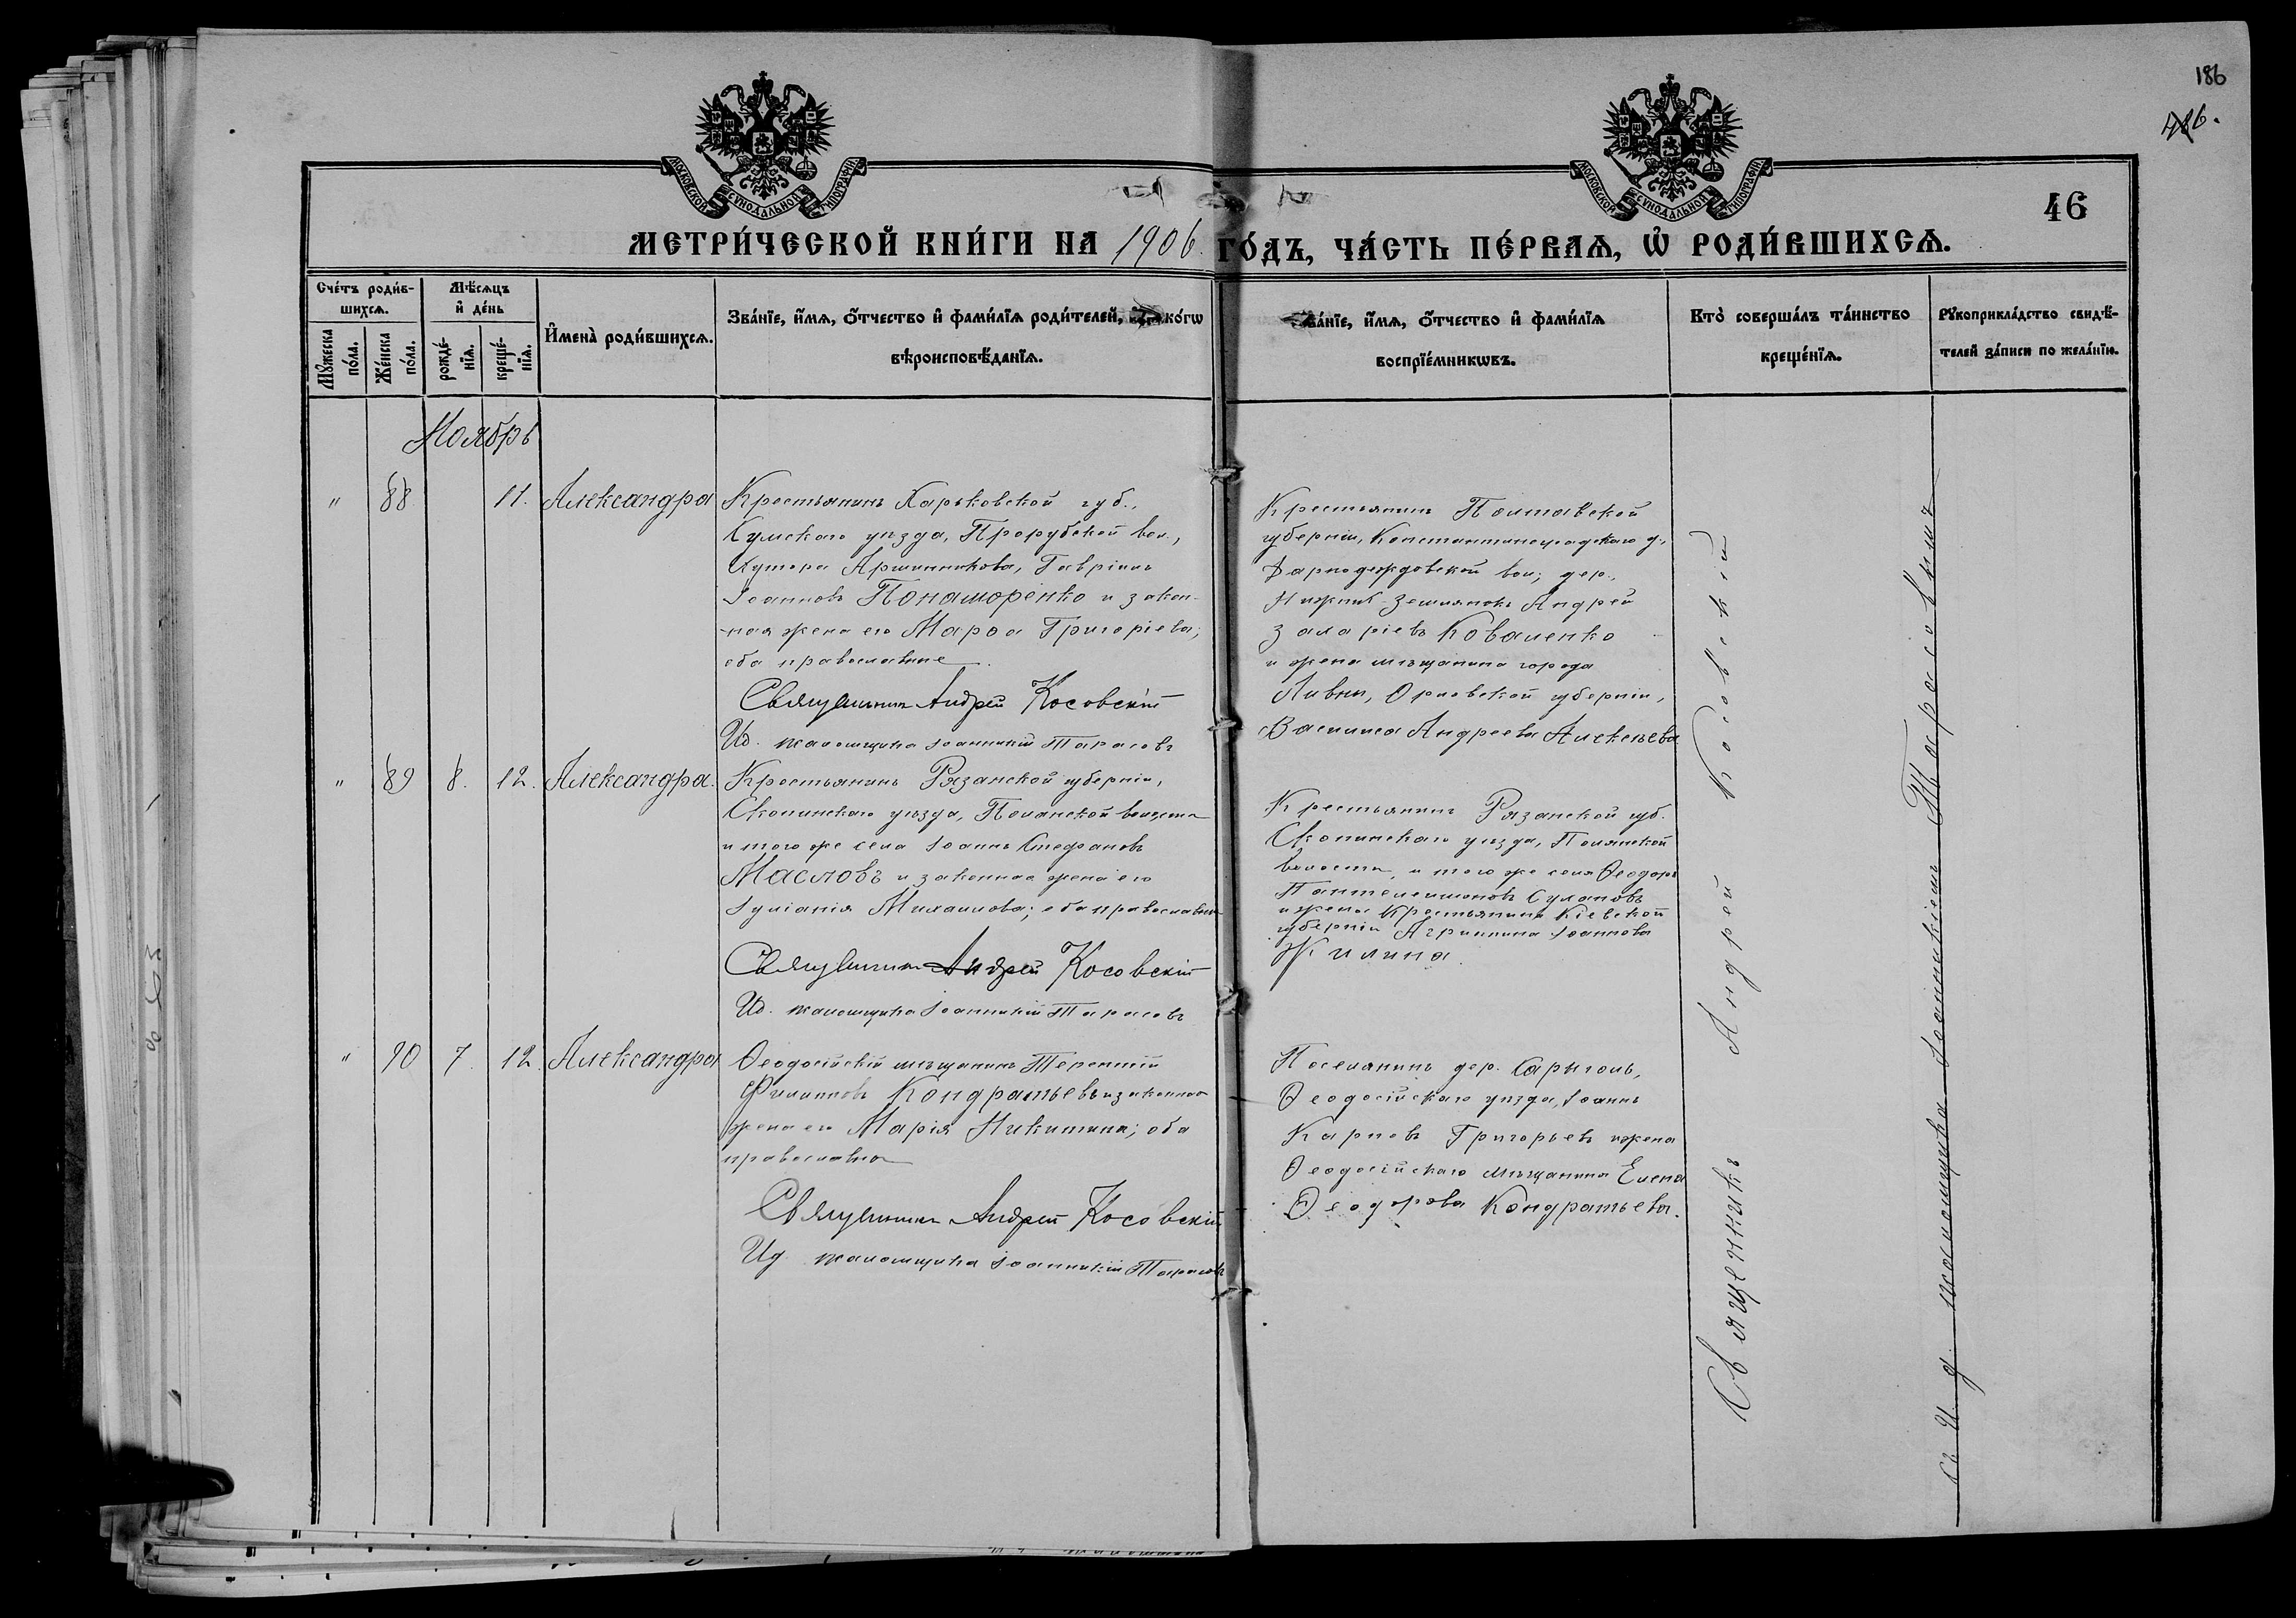 186
46
МОСКОВСКОЙ СѴНОДАЛЬНОЙ ТИПОГРАФІИ
МОСКОВСКОЙ СѴНОДАЛЬНОЙ ТИПОГРАФІИ
МЕТРИ́ЧЕСКОЙ КНИ́ГИ НА 1906 ГО́ДЪ, ЧА́СТЬ ПЕ́РВАѦ, Ѡ҆ РОДИ́ВШИХСѦ.
Сче́тъ роди́в-
шихсѧ.
Мꙋ́жеска по́ла.
Же́нска по́ла.
Мѣ́сѧцъ
и҆ де́нь
рожде́-
нїѧ.
креще́-
нїѧ.
И҆мена̀ роди́вшихсѧ.
Зва́нїе, и҆́мѧ, ѻ҆́тчество и҆ фами́лїѧ роди́телей, и҆ како́гѡ
вѣроисповѣ́данїѧ.
Зва́нїе, и҆́мѧ, ѻ҆́тчество и҆ фами́лїѧ
воспрїе́мникѡвъ.
Кто̀ соверша́лъ та́инство
креще́нїѧ.
Рꙋкоприкла́дство свидѣ́-
телей за́писи по жела́нїю.
Ноябрь
" 88 11. Александра
Крестьянинъ Харьковской губ.,
Сумскаго уѣзда, Прорубской вол.,
Хутора Аршинникова, Гавріилъ
Іоанновъ Понаморенко и закон-
ная жена его Марѳа Григоріева;
оба православные
Священникъ Андрей Косовскій
Ид. псаломщика Іоанникій Тарасовъ
Крестьянинъ Полтавской
губерніи, Константиноградскаго у.,
вол; дер.,
Андрей
Коваленко
и жена мѣщанина города
Ливны, Орловской губерніи,
Василиса Андреева Алексѣева
" 89 8. 12. Александра.
Крестьянинъ Рязанской губерніи,
Скопинскаго уѣзда, Полянской волости
и того же села Іоаннъ Стефановъ
Масловъ и законная жена его
Іуліанія Михаилова; оба православны
Священникъ Андрей Косовскій
Ид. псаломщика Іоанникій Тарасовъ
Крестьянинъ Рязанской губ.
Скопинскаго уѣзда, Полянской
волости, и того же села Ѳеодоръ
Пантелеимоновъ Сулановъ
и жена Крестьянина Кіевской
губерніи Агриппина Іоаннова
Жилина.
" 90 7. 12. Александра
Ѳеодосійскій мѣщанинъ Терентій
Филипповъ Кондратьевъ и законная
жена его Марія Никитина; оба
православны
Священникъ Андрей Косовскій
Ид. псаломщика Іоанникій Тарасовъ
Поселянинъ дер. Сарыголь,
Ѳеодосійскаго уѣзда, Іоаннъ
Карповъ Григорьевъ и жена
Ѳеодосійскаго мѣщанина Елена
Ѳеодорова Кондратьева.
Священникъ Андрей Косовскій
съ И. д. псаломщика Іоанникіемъ Тарасовымъ